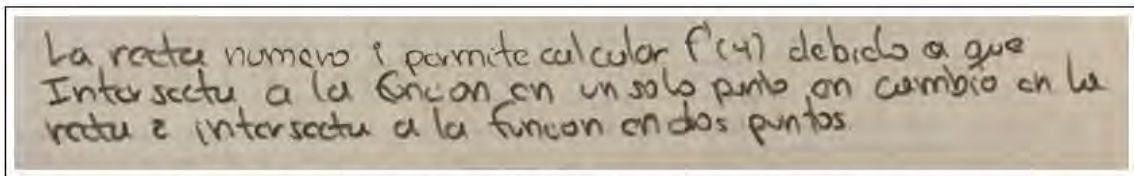 La recta numero 1 permite calcular f'(4) debido a que
Intersecta a la funcon en un solo punto en cambio en la
recta 2 intersecta a la funcon en dos puntos